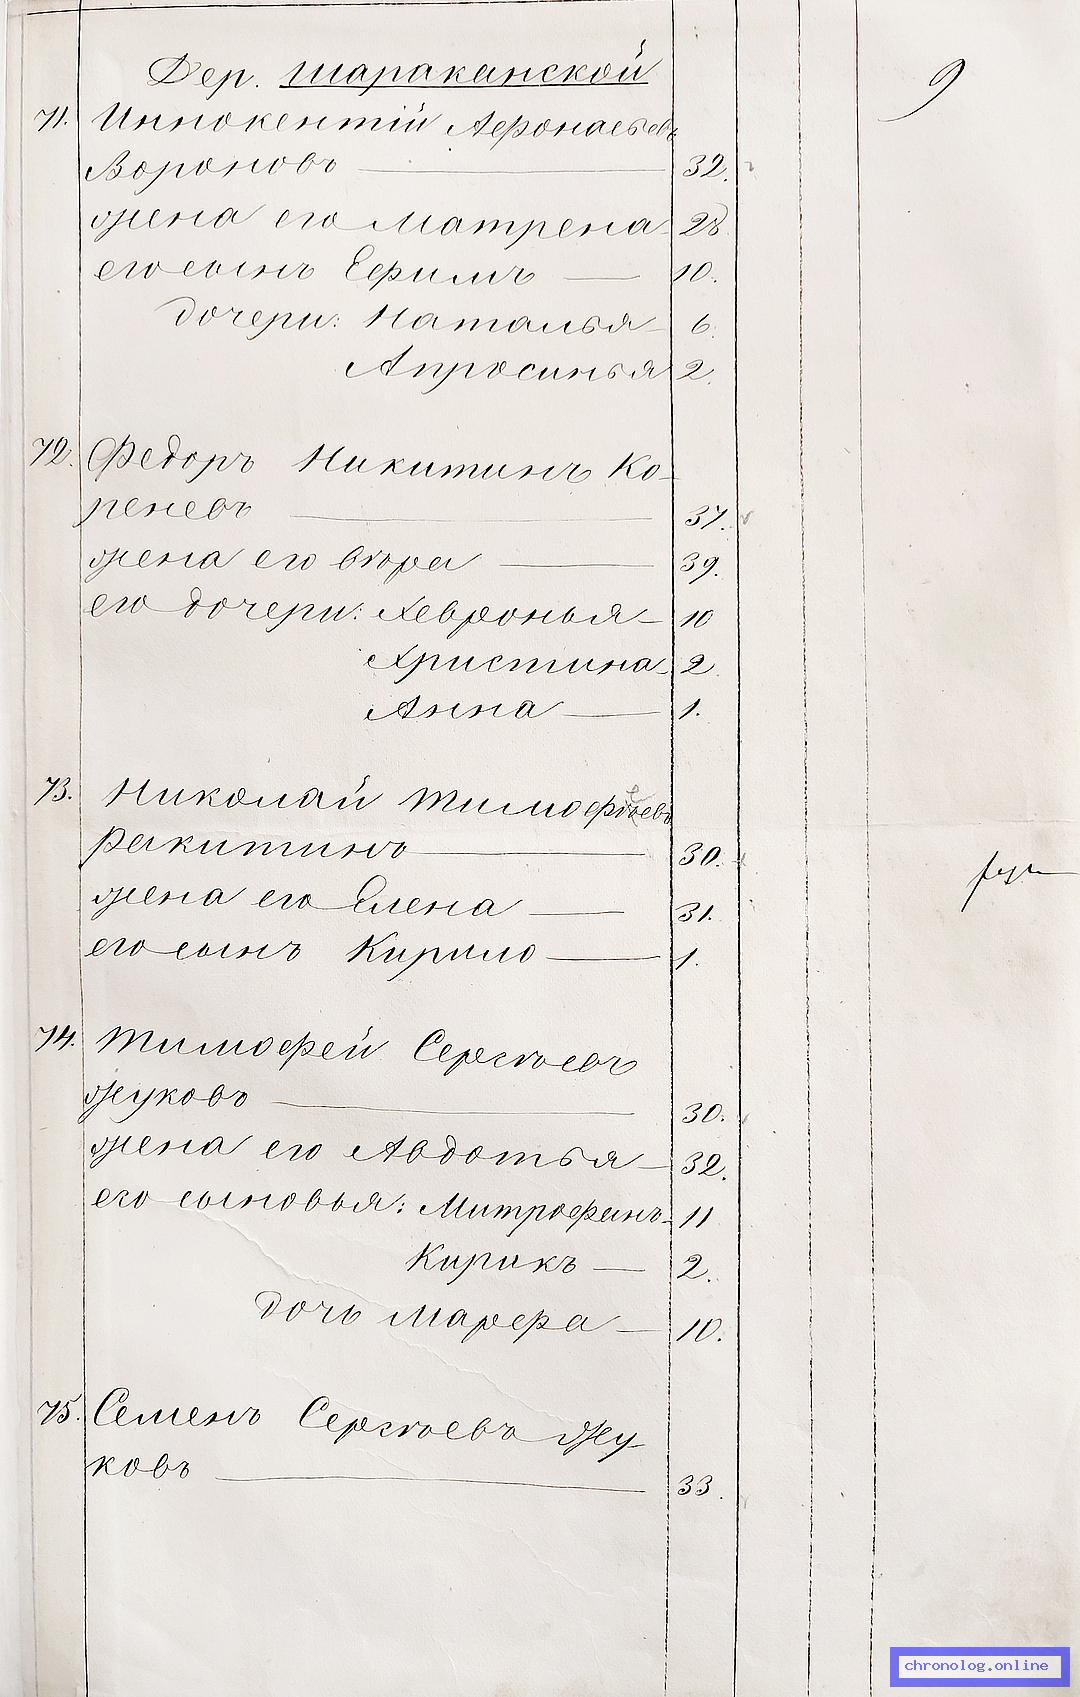 Дер. Шараканской
9
71. Иннокентій Афонасьевъ
Вороновъ 32.
жена его Матрена 28
его сынъ Ефимъ 10.
дочери: Наталья 6.
Апросинья 2.
72. Федоръ Никитинъ Ко-
реневъ 37.
жена его вѣра 39.
его дочери: Хевронья 10
Христина 2.
Анна 1.
73. Николай Тимофѣевъ
Ракитинъ 30.
жена его Елена 31.
его сынъ Кирило 1.
74. Тимофей Сергѣевъ
Жуковъ 30.
жена его Авдотья 32.
его сыновья: Митрофанъ 11
Кирикъ 2.
дочь Марфа 10.
75. Семенъ Сергѣевъ Жу
ковъ 33.
chronolog.online